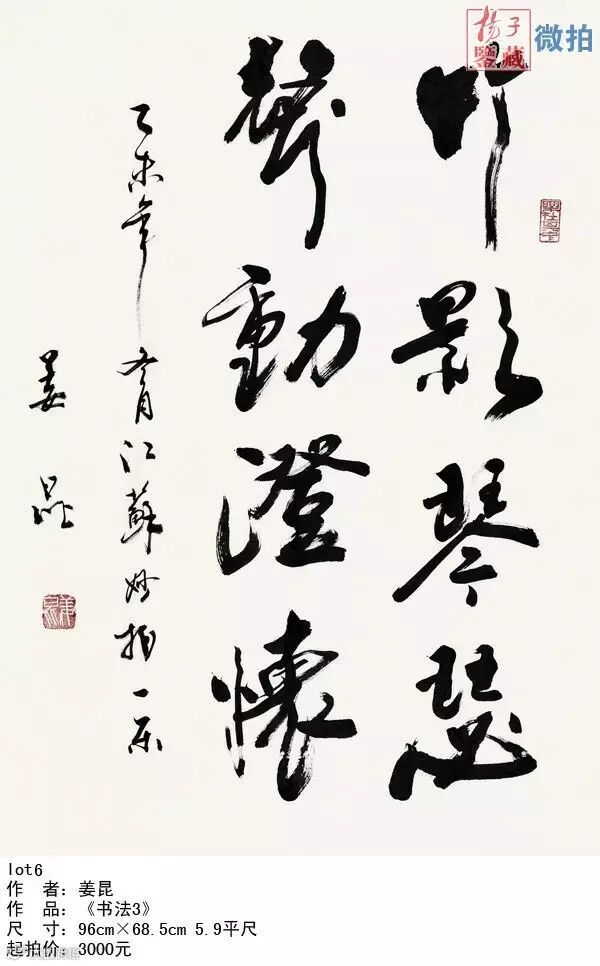 楊子
鑒藏
微拍
竹影琴瑟
聲動澄懷
乙未年 江蘇妙拍一乐
姜昆
lot6
作 者：姜昆
作 品：《书法3》
尺 寸：96cm×68.5cm 5.9平尺
起拍价：3000元